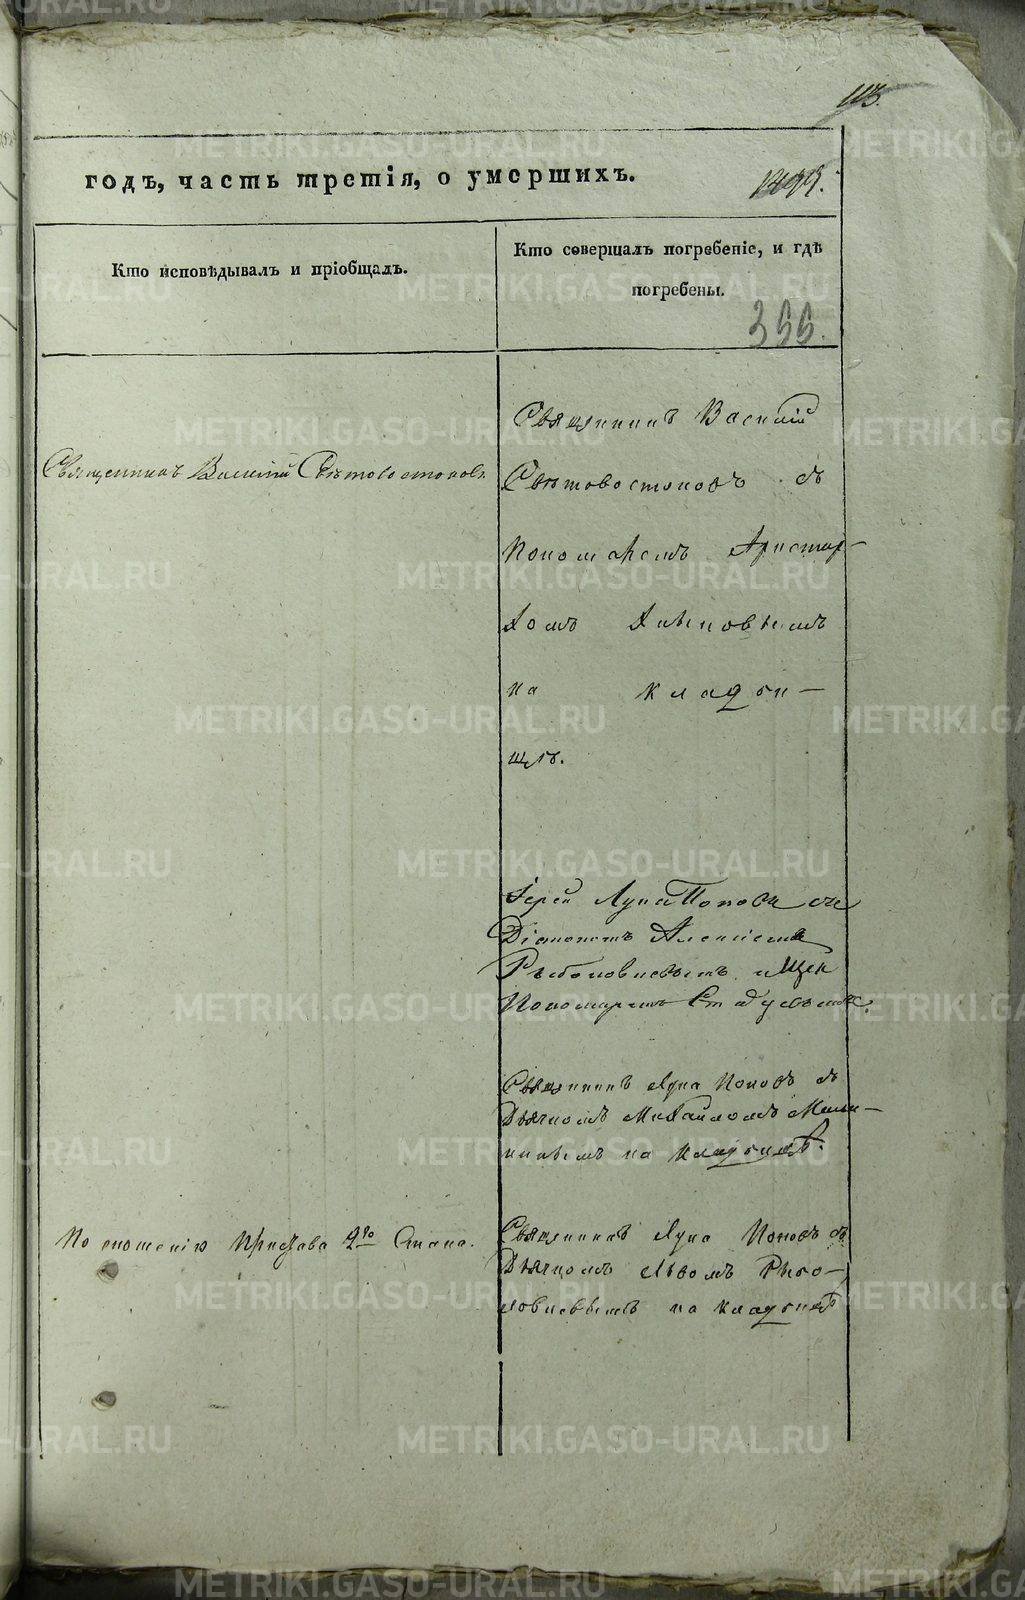 113.
годъ, часть третія, о умершихъ.
Кто исповѣдывалъ и пріобщалъ.
Кто совершалъ погребеніе, и гдѣ
погребены.
366.
Священникъ Василій
Священникъ Василій Свѣтовостоковъ.
Свѣтовостоковъ съ
Пономаремъ Аристар-
хомъ
на кладби-
щѣ.
Іерей Лука Поповъ съ
Діакономъ Алексіемъ
Рыболовлевымъ и
Пономаремъ
Священникъ Лука Поповъ съ
Дьячкомъ Михайломъ
на кладбищѣ.
По сношенію Пристава 2го Стана.
Священникъ Лука Поповъ съ
Дьячкомъ Львомъ Рыбо-
ловлевымъ на кладбищѣ
METRIKI.GASO-URAL.RU